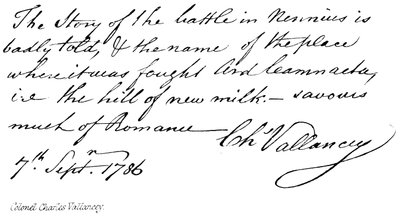 The Story of the battle in Nennius is
badly told, & the name of the place
where it was fought Ard leamnacta,
i.e the hill of new milk — savours
much of Romance
Chs Vallancey
7.th Septr. 1786
Colonel Charles Vallancey.